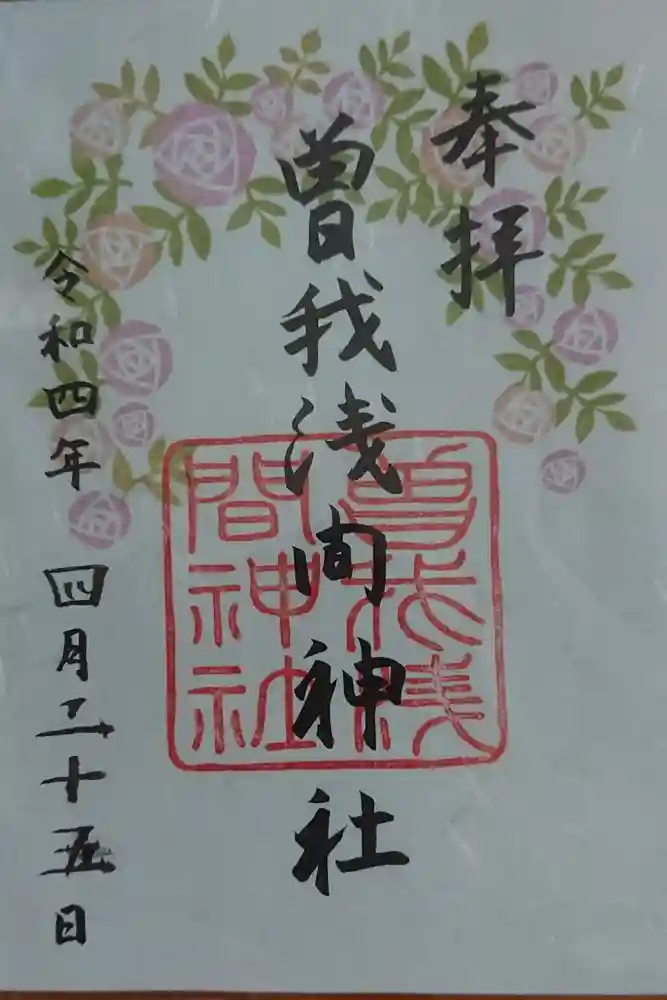 奉拝
曽我浅間神社
曽我浅
間神社
令和四年四月二十五日